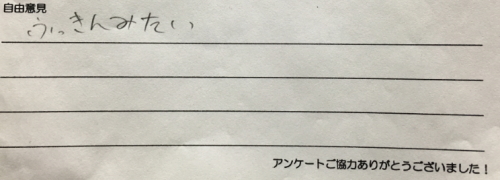 自由意見
ふっきんみたい
アンケートご協力ありがとうございました！